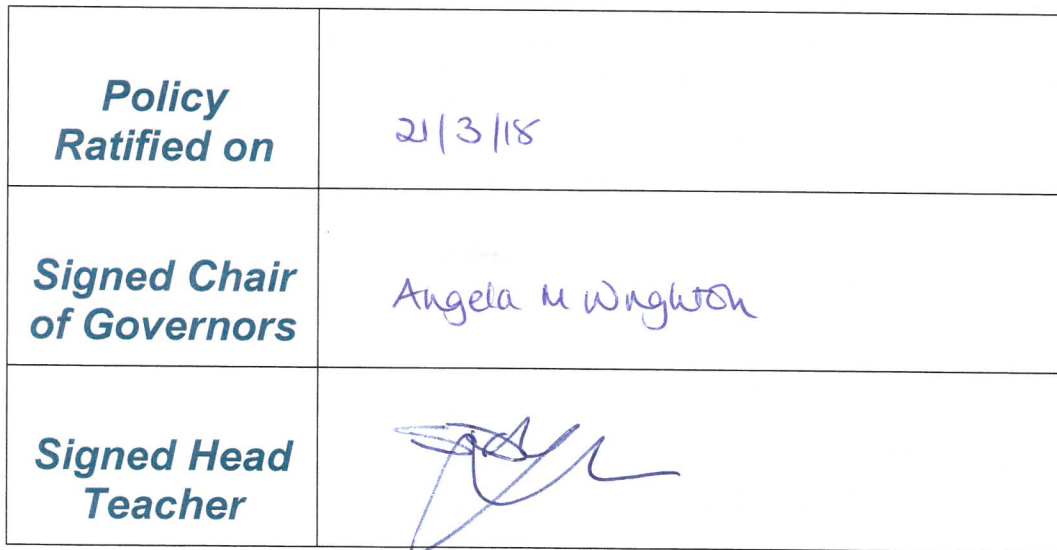 Policy
Ratified on
21/3/18
Signed Chair
of Governors
Angela M Wrighton
Signed Head
Teacher